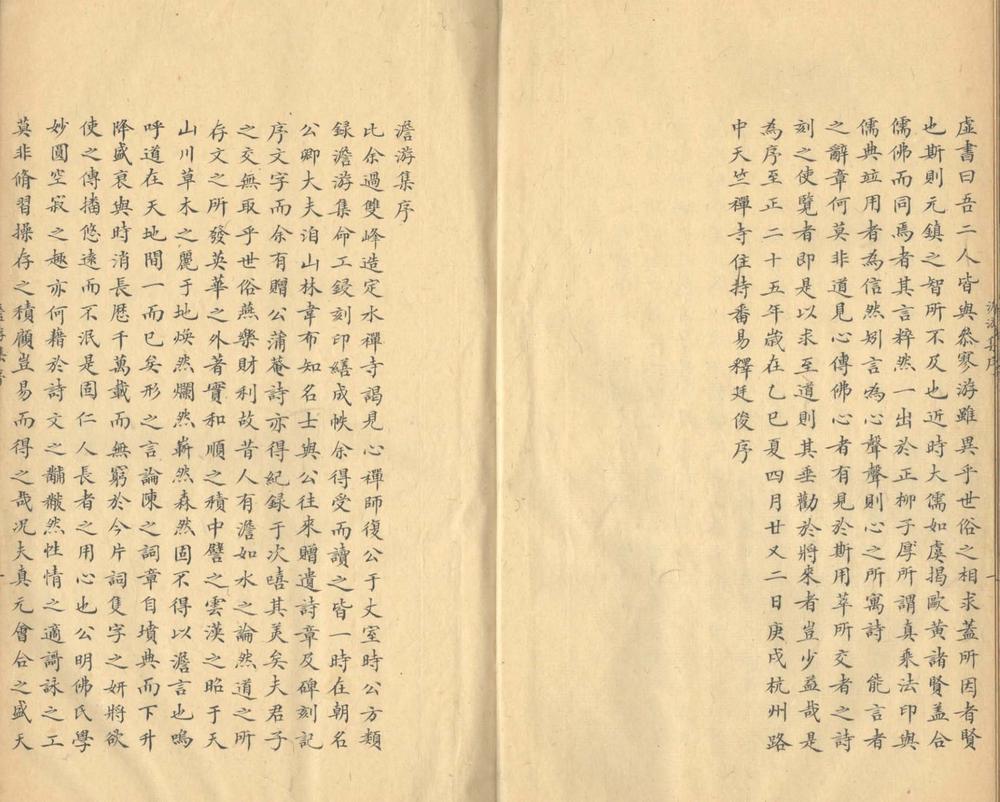 虛書曰吾二人皆與叅寥游雖異乎世俗之相求蓋所因者賢
也斯則元鎮之智所不及也近時大儒如虞揭歐黃諸賢盖合
儒佛而同焉者其言粹然一出於正柳子厚所謂真乘法印與
儒典竝用者為信然矧言為心聲聲則心之所寓詩 能言者
之辭章何莫非道見心傳佛心者有見於斯用萃所交者之詩
刻之使覽者即是以求至道則其垂勸於將來者豈少益哉是
為序至正二十五年歲在乙巳夏四月廿又二日庚戌杭州路
中天竺禪寺住持番易釋廷俊序
澹游集序
比余過雙峰造定水禪寺謁見心禪師復公于丈室時公方類
録澹游集命工鋟刻印繕成帙余得受而讀之皆一時在朝名
公卿大夫洎山林韋布知名士與公往來贈遺詩章及碑刻記
序文字而余有贈公蒲菴詩亦得紀録于次嘻其美矣夫君子
之交無取乎世俗燕樂財利故昔人有澹如水之論然道之所
存文之所發英華之外著實和順之積中譬之雲漢之昭于天
山川草木之麗于地煥然爛然嶄然森然固不得以澹言也嗚
呼道在天地間一而已矣形之言論陳之詞章自墳典而下升
降盛衰與時消長歷千萬載而無窮於今片詞隻字之妍將欲
使之傳播悠遠而不泯是固仁人長者之用心也公明佛氏學
妙圓空寂之趣亦何藉於詩文之黼黻然性情之適謌詠之工
莫非脩習操存之積顧豈易而得之哉况夫真元會合之盛天